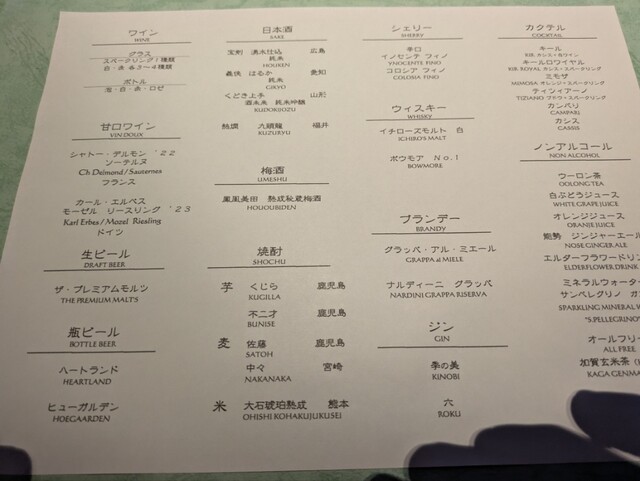 ワイン
WINE
グラス
スパークリング1種類
白・赤 各3～4種類
ボトル
泡・白・赤・ロゼ
甘口ワイン
VIN DOUX
シャトー・デルモン '22
ソーテルヌ
Ch Delmond / Sauternes
フランス
カール・エルベス
モーゼル リースリング '23
Karl Erbes / Mozel Riesling
ドイツ
生ビール
DRAFT BEER
ザ・プレミアムモルツ
THE PREMIUM MALT'S
瓶ビール
BOTTLE BEER
ハートランド
HEARTLAND
ヒューガルデン
HOEGAARDEN
日本酒
SAKE
宝剣 湧水仕込 広島
純米
HOUKEN
義侠 はるか 愛知
純米
GIKYO
くどき上手 山形
酒未来 純米吟醸
KUDOKIJOZU
熱燗 九頭龍 福井
KUZURYU
梅酒
UMESHU
鳳凰美田 熟成秘蔵梅酒
HOUOUBIDEN
焼酎
SHOCHU
芋 くじら 鹿児島
KUGILLA
不二才 鹿児島
BUNISE
麦 佐藤 鹿児島
SATOH
中々 宮崎
NAKANAKA
米 大石琥珀熟成 熊本
OHISHI KOHAKUJUKUSEI
シェリー
SHERRY
辛口
イノセンテ フィノ
YNOCENTE FINO
コロシア フィノ
COLOSIA FINO
ウィスキー
WHISKY
イチローズモルト 白
ICHIRO'S MALT
ボウモア No.1
BOWMORE
ブランデー
BRANDY
グラッパ・アル・ミエール
GRAPPA al MIELE
ナルディーニ グラッパ
NARDINI GRAPPA RISERVA
ジン
GIN
季の美
KINOBI
六
ROKU
カクテル
COCKTAIL
キール
KIR カシス+白ワイン
キールロワイヤル
KIR ROYAL カシス+スパークリング
ミモザ
MIMOSA オレンジ+スパークリング
ティツィアーノ
TIZIANO ブドウ+スパークリング
カンパリ
CAMPARI
カシス
CASSIS
ノンアルコール
NON ALCOHOL
ウーロン茶
OOLONG TEA
白ぶどうジュース
WHITE GRAPE JUICE
オレンジジュース
ORANJE JUICE
能勢 ジンジャーエール
NOSE GINGER ALE
エルダーフラワードリン
ELDERFLOWER DRINK
ミネラルウォーター
サンペレグリノ ガ
SPARKLING MINERAL W
"S.PELLEGRINO"
オールフリー
ALL FREE
加賀玄米茶
KAGA GENMA